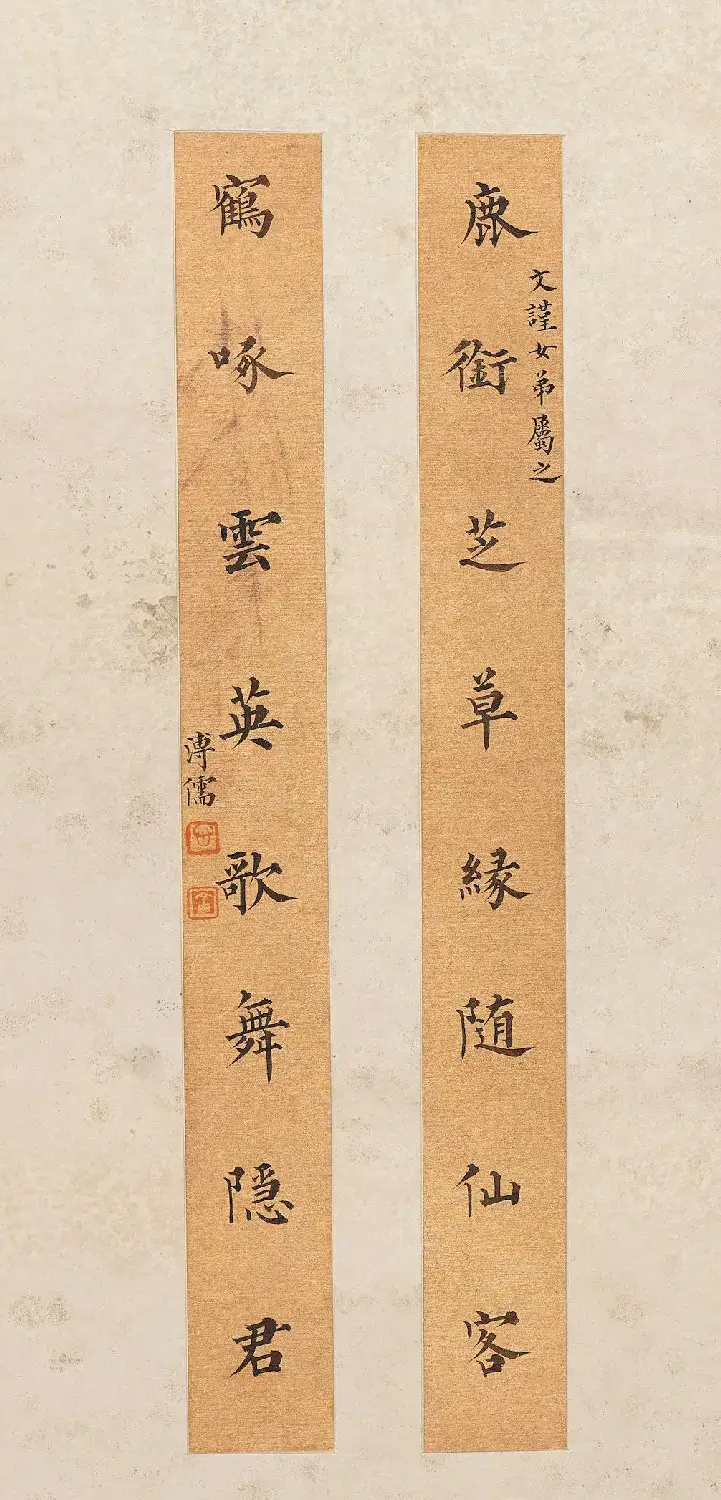 鹿銜芝草緣隨仙客
文謹女弟屬之
鶴啄雲英歌舞隱君
溥儒